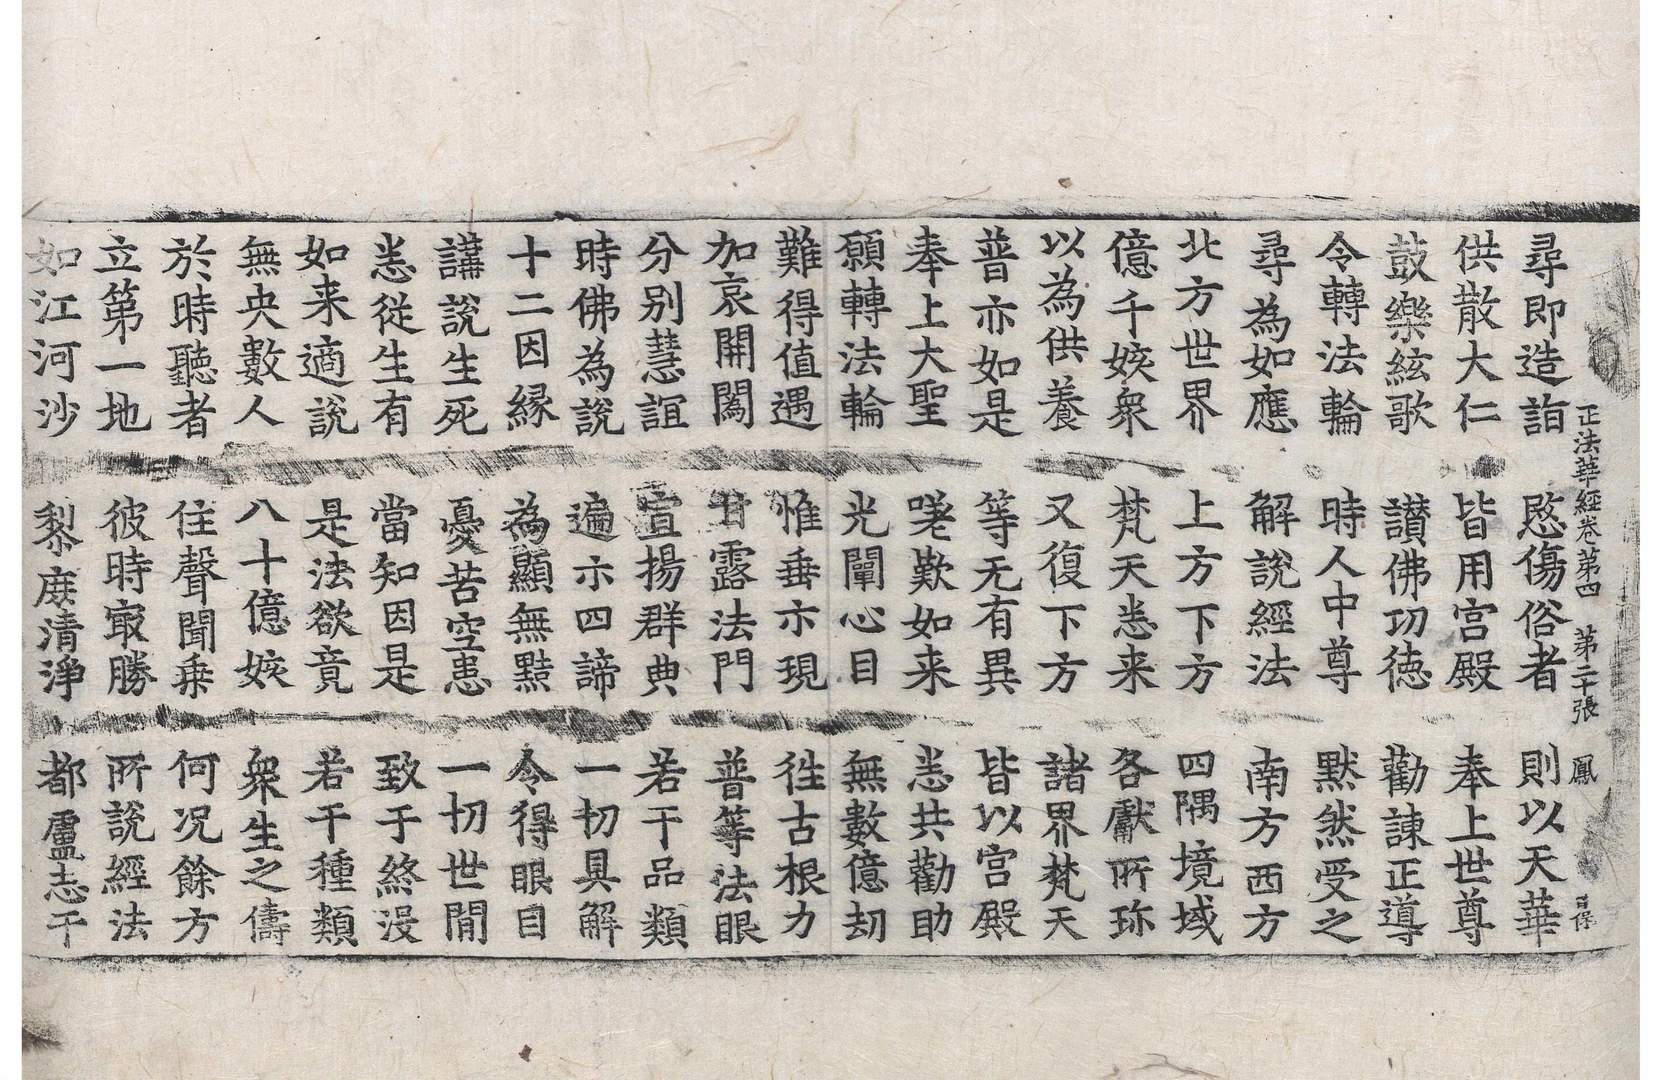 正法華經卷第四 第二十張 鳳 吉保
尋即造詣 愍傷俗者 則以天華
供散大仁 皆用宮殿 奉上世尊
鼓樂絃歌 讃佛功徳 勸諌正導
令轉法輪 時人中尊 默然受之
尋為如應 解說經法 南方西方
北方世界 上方下方 四隅境域
億千姟衆 梵天悉来 各獻所珎
以為供養 又復下方 諸界梵天
普亦如是 等无有異 皆以宮殿
奉上大聖 嗟歎如来 悉共勸助
願轉法輪 光闡心目 無數億劫
難得值遇 惟垂示現 徃古根力
加哀開闔 甘露法門 普等法眼
分別慧誼 宣揚群典 若干品類
時佛為說 遍示四諦 一切具解
十二因縁 為顯無黠 令得眼目
講說生死 憂苦空患 一切世間
悉從生有 當知因是 致于終没
如来適說 是法欲竟 若干種類
無央數人 八十億姟 衆生之儔
於時聽者 住聲聞乗 何況餘方
立第一地 彼時㝡勝 所說經法
如江河沙 黎庶清淨 都盧志干